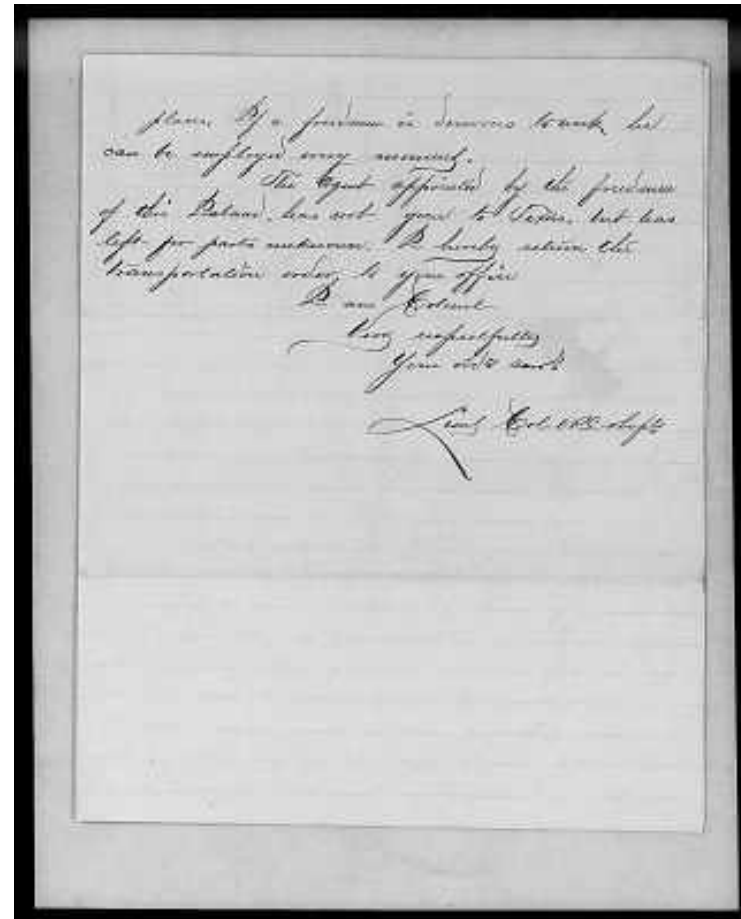 place. If a freedman is desirous to work, he
can be employed every moment.
The Agent appointed by the freedmen
of this Island, has not gone to Texas, but has
left for parts unknown. I hereby return the
transportation order to your office
I am Colonel
Very respectfully
Your obt servt
Lieut Col